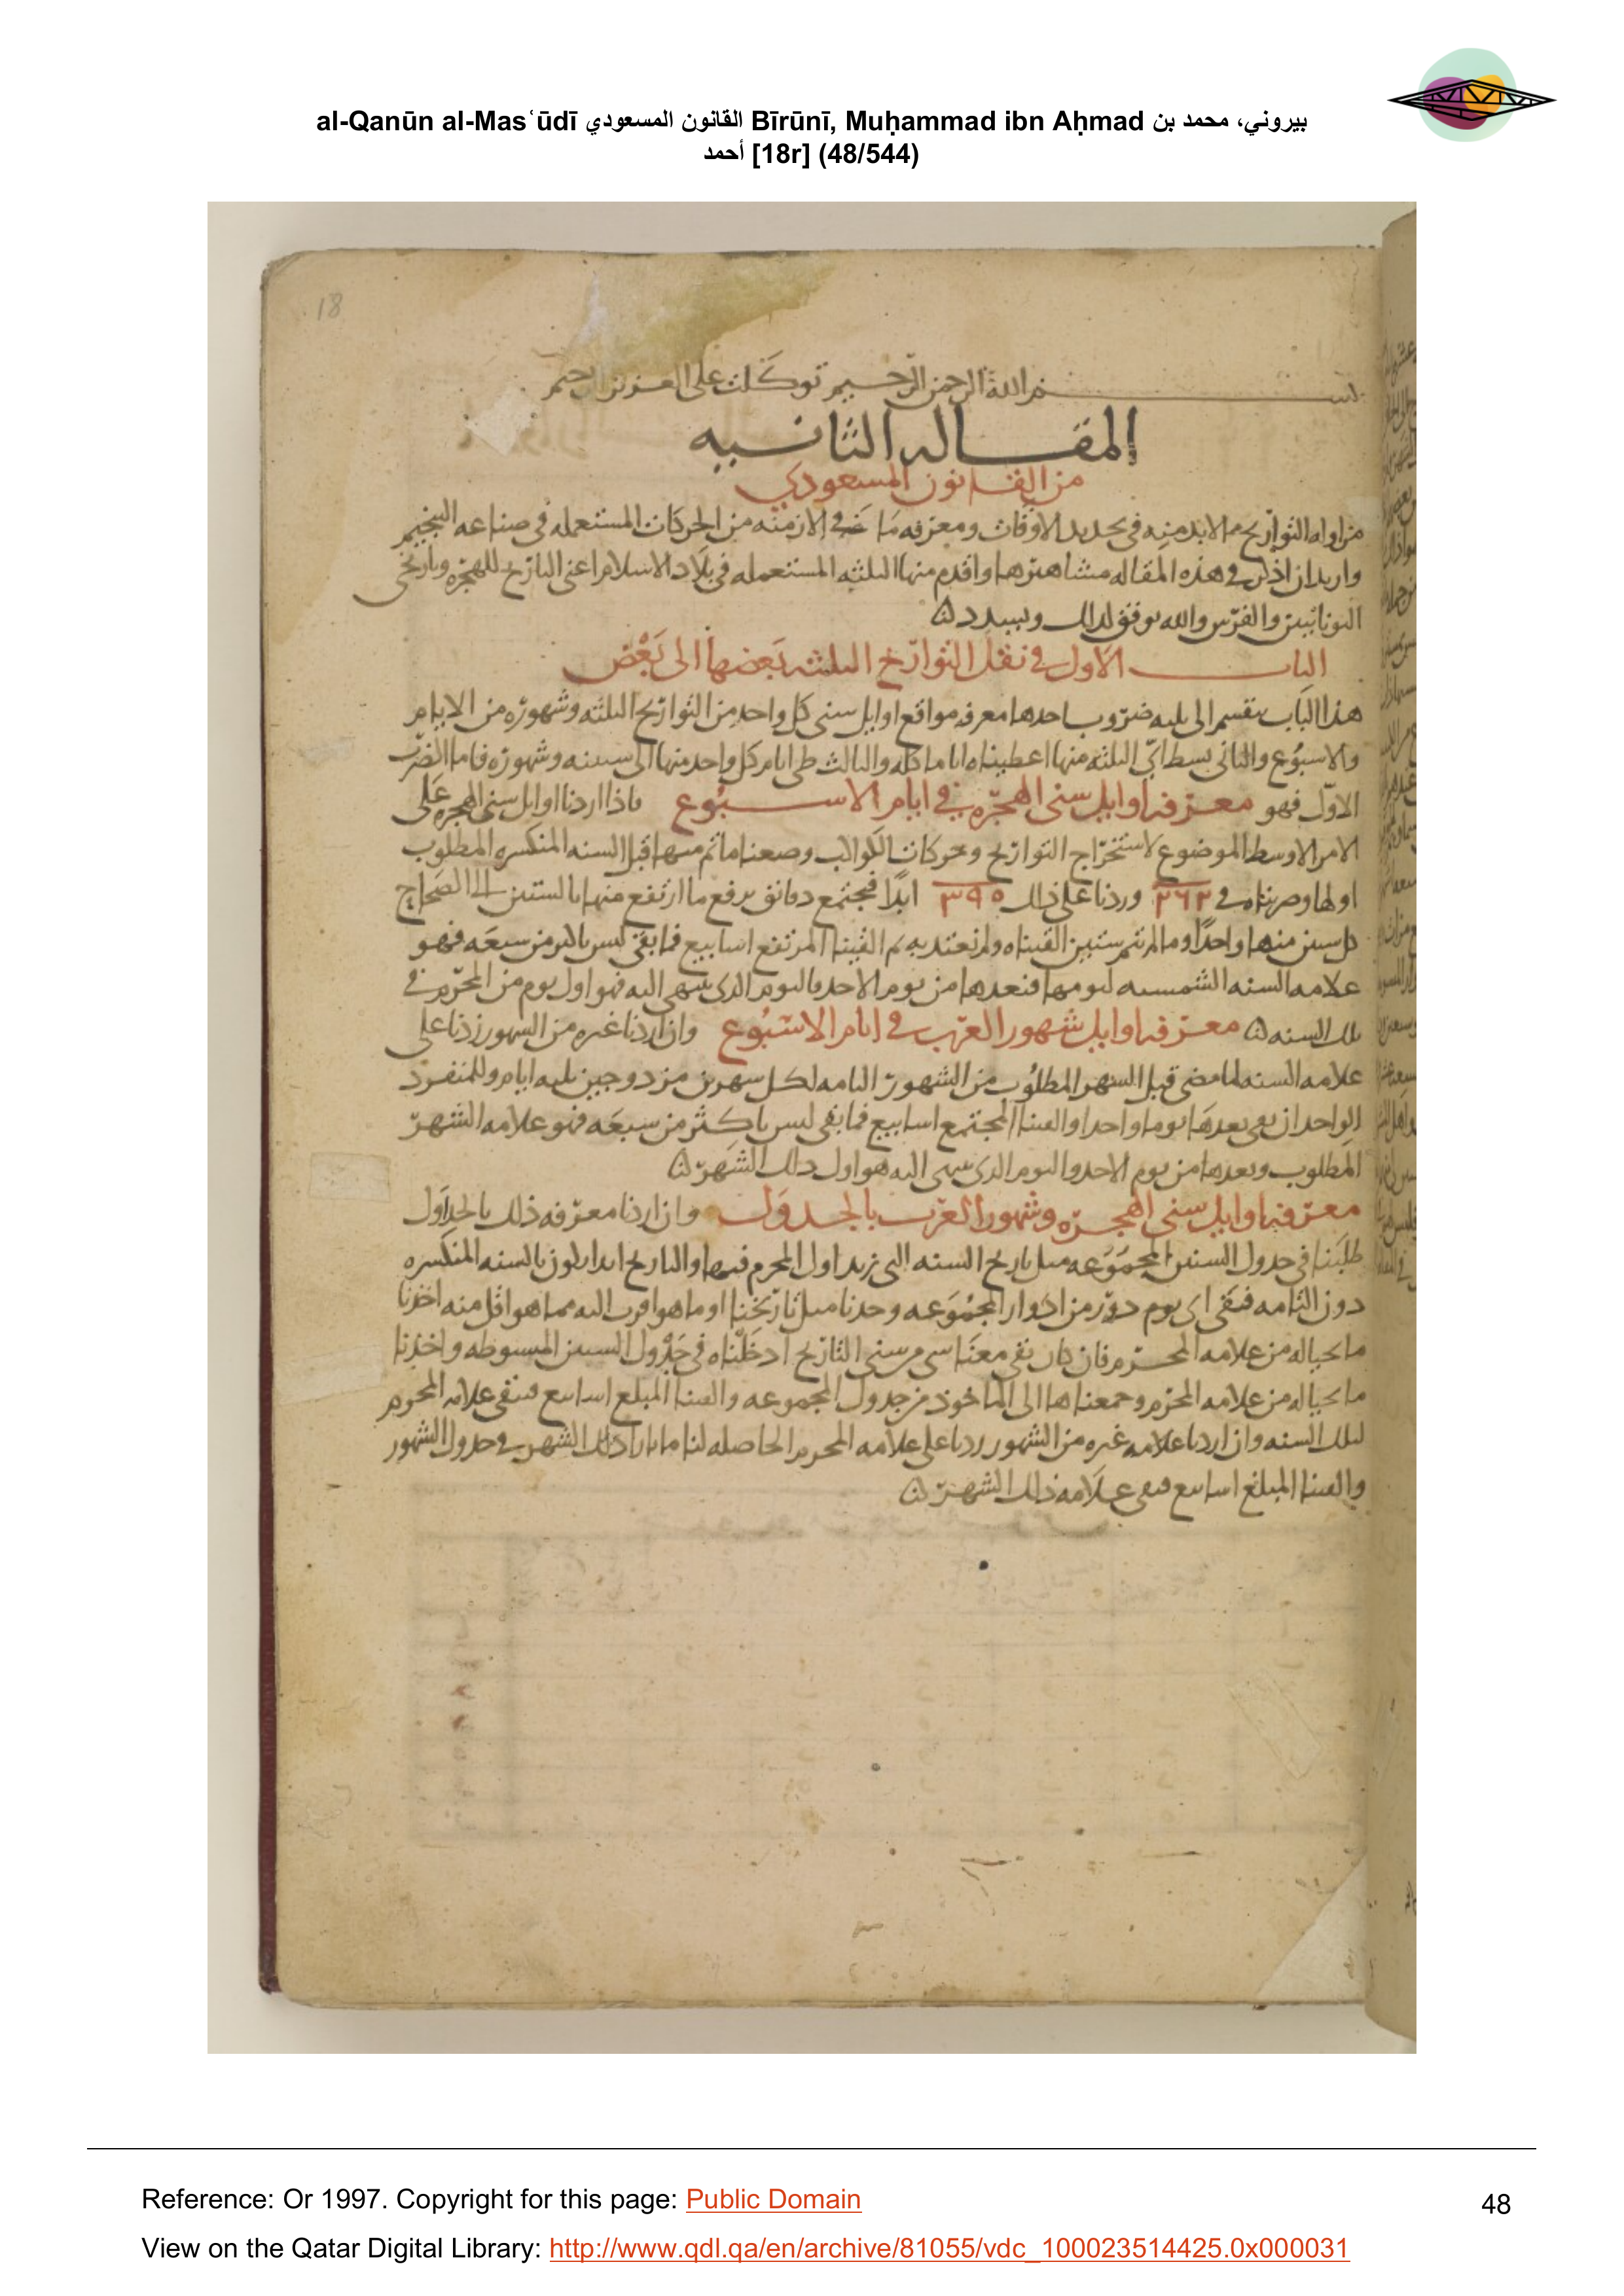 al-Qanūn al-Masʿūdī القانون المسعودي Bīrūnī, Muḥammad ibn Aḥmad بيروني، محمد بن
أحمد [18r] (48/544)
18
بسم الله الرحمن الرحيم توكلت على العزيز الرحيم
المقاله الثانيه
من القانون المسعودي
من اوله التواريخ مما لابد منه فى تحديد الاوقات ومعرفه ما فى الازمنه من الحركات المستعمله فى صناعه التنجيم
واريد ان اذكر فى هذه المقاله مشاهيرها واقدم منها الثلثه المستعمله فى بلاد الاسلام اعنى التاريخ للهجره وتاريخى
اليونانيين والفرس والله يوفق لذلك ويسدد
الباب الاول فى نقل التواريخ الثلثه بعضها الى بعض
هذا الباب ينقسم الى ثلثه ضروب احدها معرفه مواقع اوايل سنى كل واحد من التواريخ الثلثه وشهوره من الايام
والاسبوع والثانى بسط اى الثلثه منها اعطيناه اياما كله والثالث طى ايام كل واحد منها الى سنيه وشهوره فاما الضرب
الاول فهو معرفه اوايل سنى الهجره فى ايام الاسبوع فاذا اردنا اوايل سنى الهجره على
الامر الاوسط الموضوع لاستخراج التواريخ وحركات الكواكب وضعنا ما تم منها قبل السنه المنكسره المطلوب
اولها وضربناه فى ٢٦٢ وزدنا على ذلك ٣٩٥ ابدًا فيجتمع دقائق يرفع ما ارتفع منها بالستين الى الصحاح
كل ستين منها واحدًا وما لم يتم ستين القيناه ولم نعتد به ثم القينا المرتفع اسابيع فما بقى ليس باكثر من سبعه فهو
علامه السنه ليومها فنعدها من يوم الاحد فاليوم الذى ينتهى اليه فهو اول يوم من المحرم فى
تلك السنه معرفه اوايل شهور العرب فى ايام الاسبوع وان اردنا غيره من الشهور زدنا على
علامه السنه لما مضى قبل الشهر المطلوب من الشهور التامه لكل شهرين مزدوجين ثلثه ايام وللمنفرد
الواحد ان بقى بعدها يوما واحدا والقينا المجتمع اسابيع فما بقى ليس باكثر من سبعه فهو علامه الشهر
المطلوب ونعدها من يوم الاحد واليوم الذى ينتهى اليه هو اول ذلك الشهر
معرفه اوايل سنى الهجره وشهور العرب بالجدول وان اردنا معرفه ذلك بالجداول
طلبنا فى جدول السنين المجموعه مثل تاريخ السنه التى نريد اول المحرم فيها والتاريخ ابدا يكون بالسنه المنكسره
دون التامه فنفى اى يوم دور من ادوار المجموعه وجدنا مثل تاريخنا او ما هو اقرب اليه مما هو اقل منه اخذنا
ما بحياله من علامه المحرم فان كان بقى معنا شى من سنى التاريخ ادخلناه فى جدول السنين المبسوطه واخذنا
ما بحياله من علامه المحرم وجمعناها الى الماخوذ من جدول المجموعه والقينا المبلغ اسابيع فتبقى علامه المحرم
لتلك السنه وان اردنا علامه غيره من الشهور زدنا على علامه المحرم الحاصله لنا ما بازا ذلك الشهر فى جدول الشهور
والقينا المبلغ اسابيع فبقى علامه ذلك الشهر
Reference: Or 1997. Copyright for this page: Public Domain
48
View on the Qatar Digital Library: http://www.qdl.qa/en/archive/81055/vdc_100023514425.0x000031